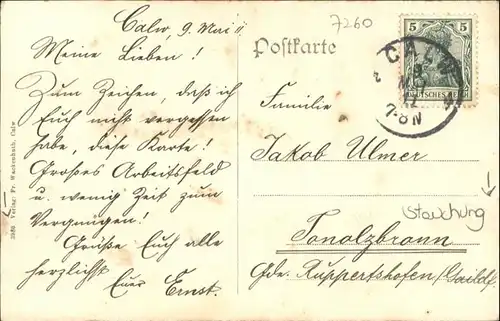 Calw, 9. Mai 11
Meine Lieben!
Zum Zeichen, daß ich
Euch nicht vergessen
habe, diese Karte!
Großes Arbeitsfeld
u. wenig Zeit zum
Vergnügen!
Grüße Euch alle
herzlichst
Euer Ernst.
3989 Verlag: Fr. Wackenhuth, Calw
7260
Postkarte
5 5
DEUTSCHES REICH
CALW
7-8N
Familie
Jakob Ulmer
Stauchung
Tonolzbronn
Gde. Ruppertshofen/Gaildf.